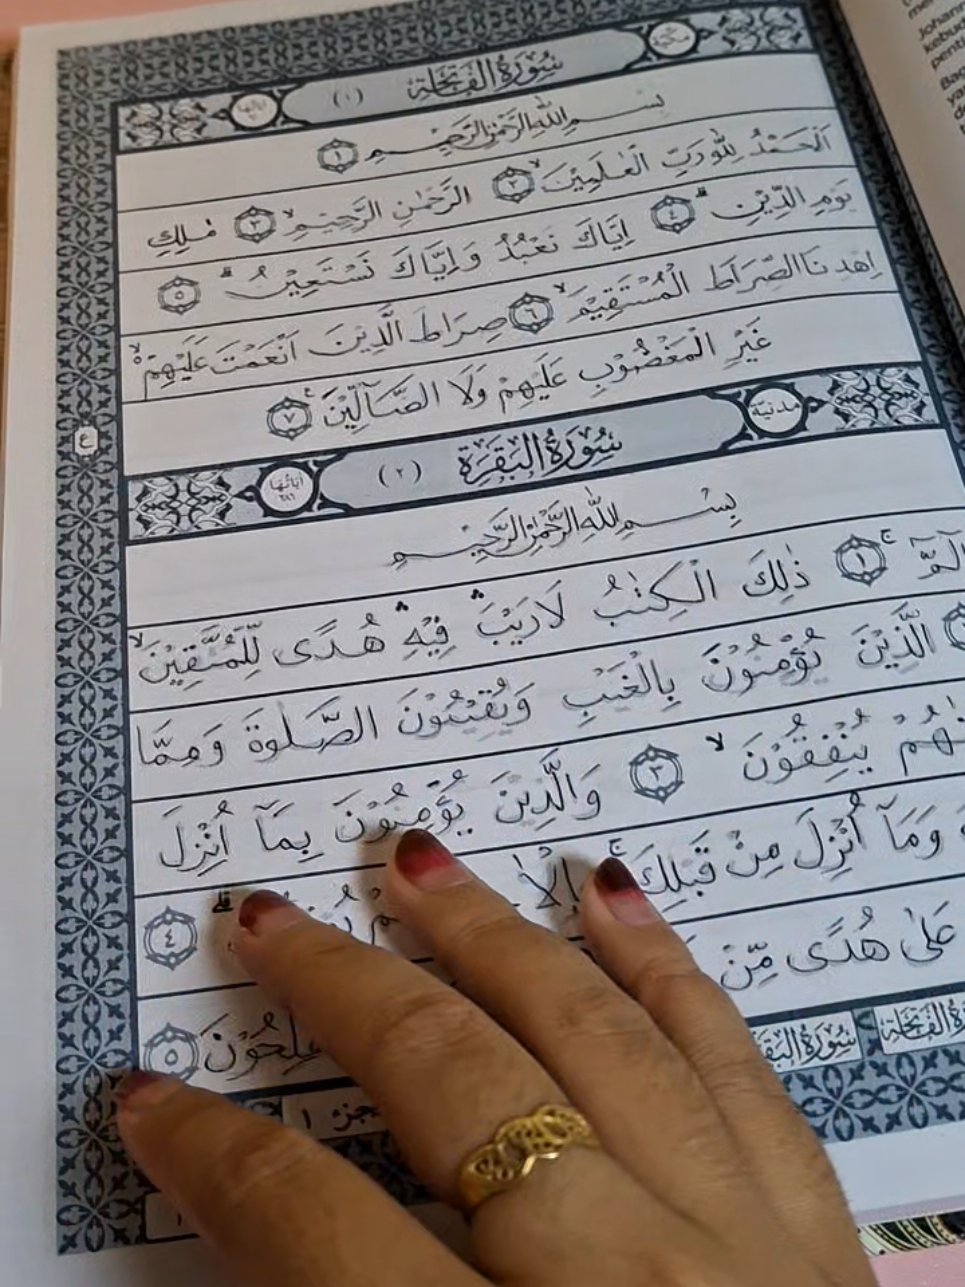 مكية سُورَةُ الْفَاتِحَةِ (١) آياتها
بِسْمِ اللهِ الرَّحْمٰنِ الرَّحِيْمِ ١
اَلْحَمْدُ لِلّٰهِ رَبِّ الْعٰلَمِيْنَ ۙ ٢ الرَّحْمٰنِ الرَّحِيْمِ ۙ ٣ مٰلِكِ
يَوْمِ الدِّيْنِ ۗ ٤ اِيَّاكَ نَعْبُدُ وَاِيَّاكَ نَسْتَعِيْنُ ۗ ٥
اِهْدِنَا الصِّرَاطَ الْمُسْتَقِيْمَ ۙ ٦ صِرَاطَ الَّذِيْنَ اَنْعَمْتَ عَلَيْهِمْ ۙ
غَيْرِ الْمَغْضُوْبِ عَلَيْهِمْ وَلَا الضَّآلِّيْنَ ۚ ٧
مدنية سُورَةُ الْبَقَرَةِ (٢) آيَاتُهَا ٢٨٦
بِسْمِ اللهِ الرَّحْمٰنِ الرَّحِيْمِ
الٓمّٓ ۚ ١ ذٰلِكَ الْكِتٰبُ لَا رَيْبَ ۛ فِيْهِ ۛ هُدًى لِّلْمُتَّقِيْنَ ۙ
الَّذِيْنَ يُؤْمِنُوْنَ بِالْغَيْبِ وَيُقِيْمُوْنَ الصَّلٰوةَ وَمِمَّا
يُنْفِقُوْنَ ۙ ٣ وَالَّذِيْنَ يُؤْمِنُوْنَ بِمَآ اُنْزِلَ
وَمَآ اُنْزِلَ مِنْ قَبْلِكَ ۚ ٤
عَلٰى هُدًى مِّنْ ٥
سُورَةُ الْفَاتِحَةِ سُورَةُ الْبَقَرَةِ ١
٤